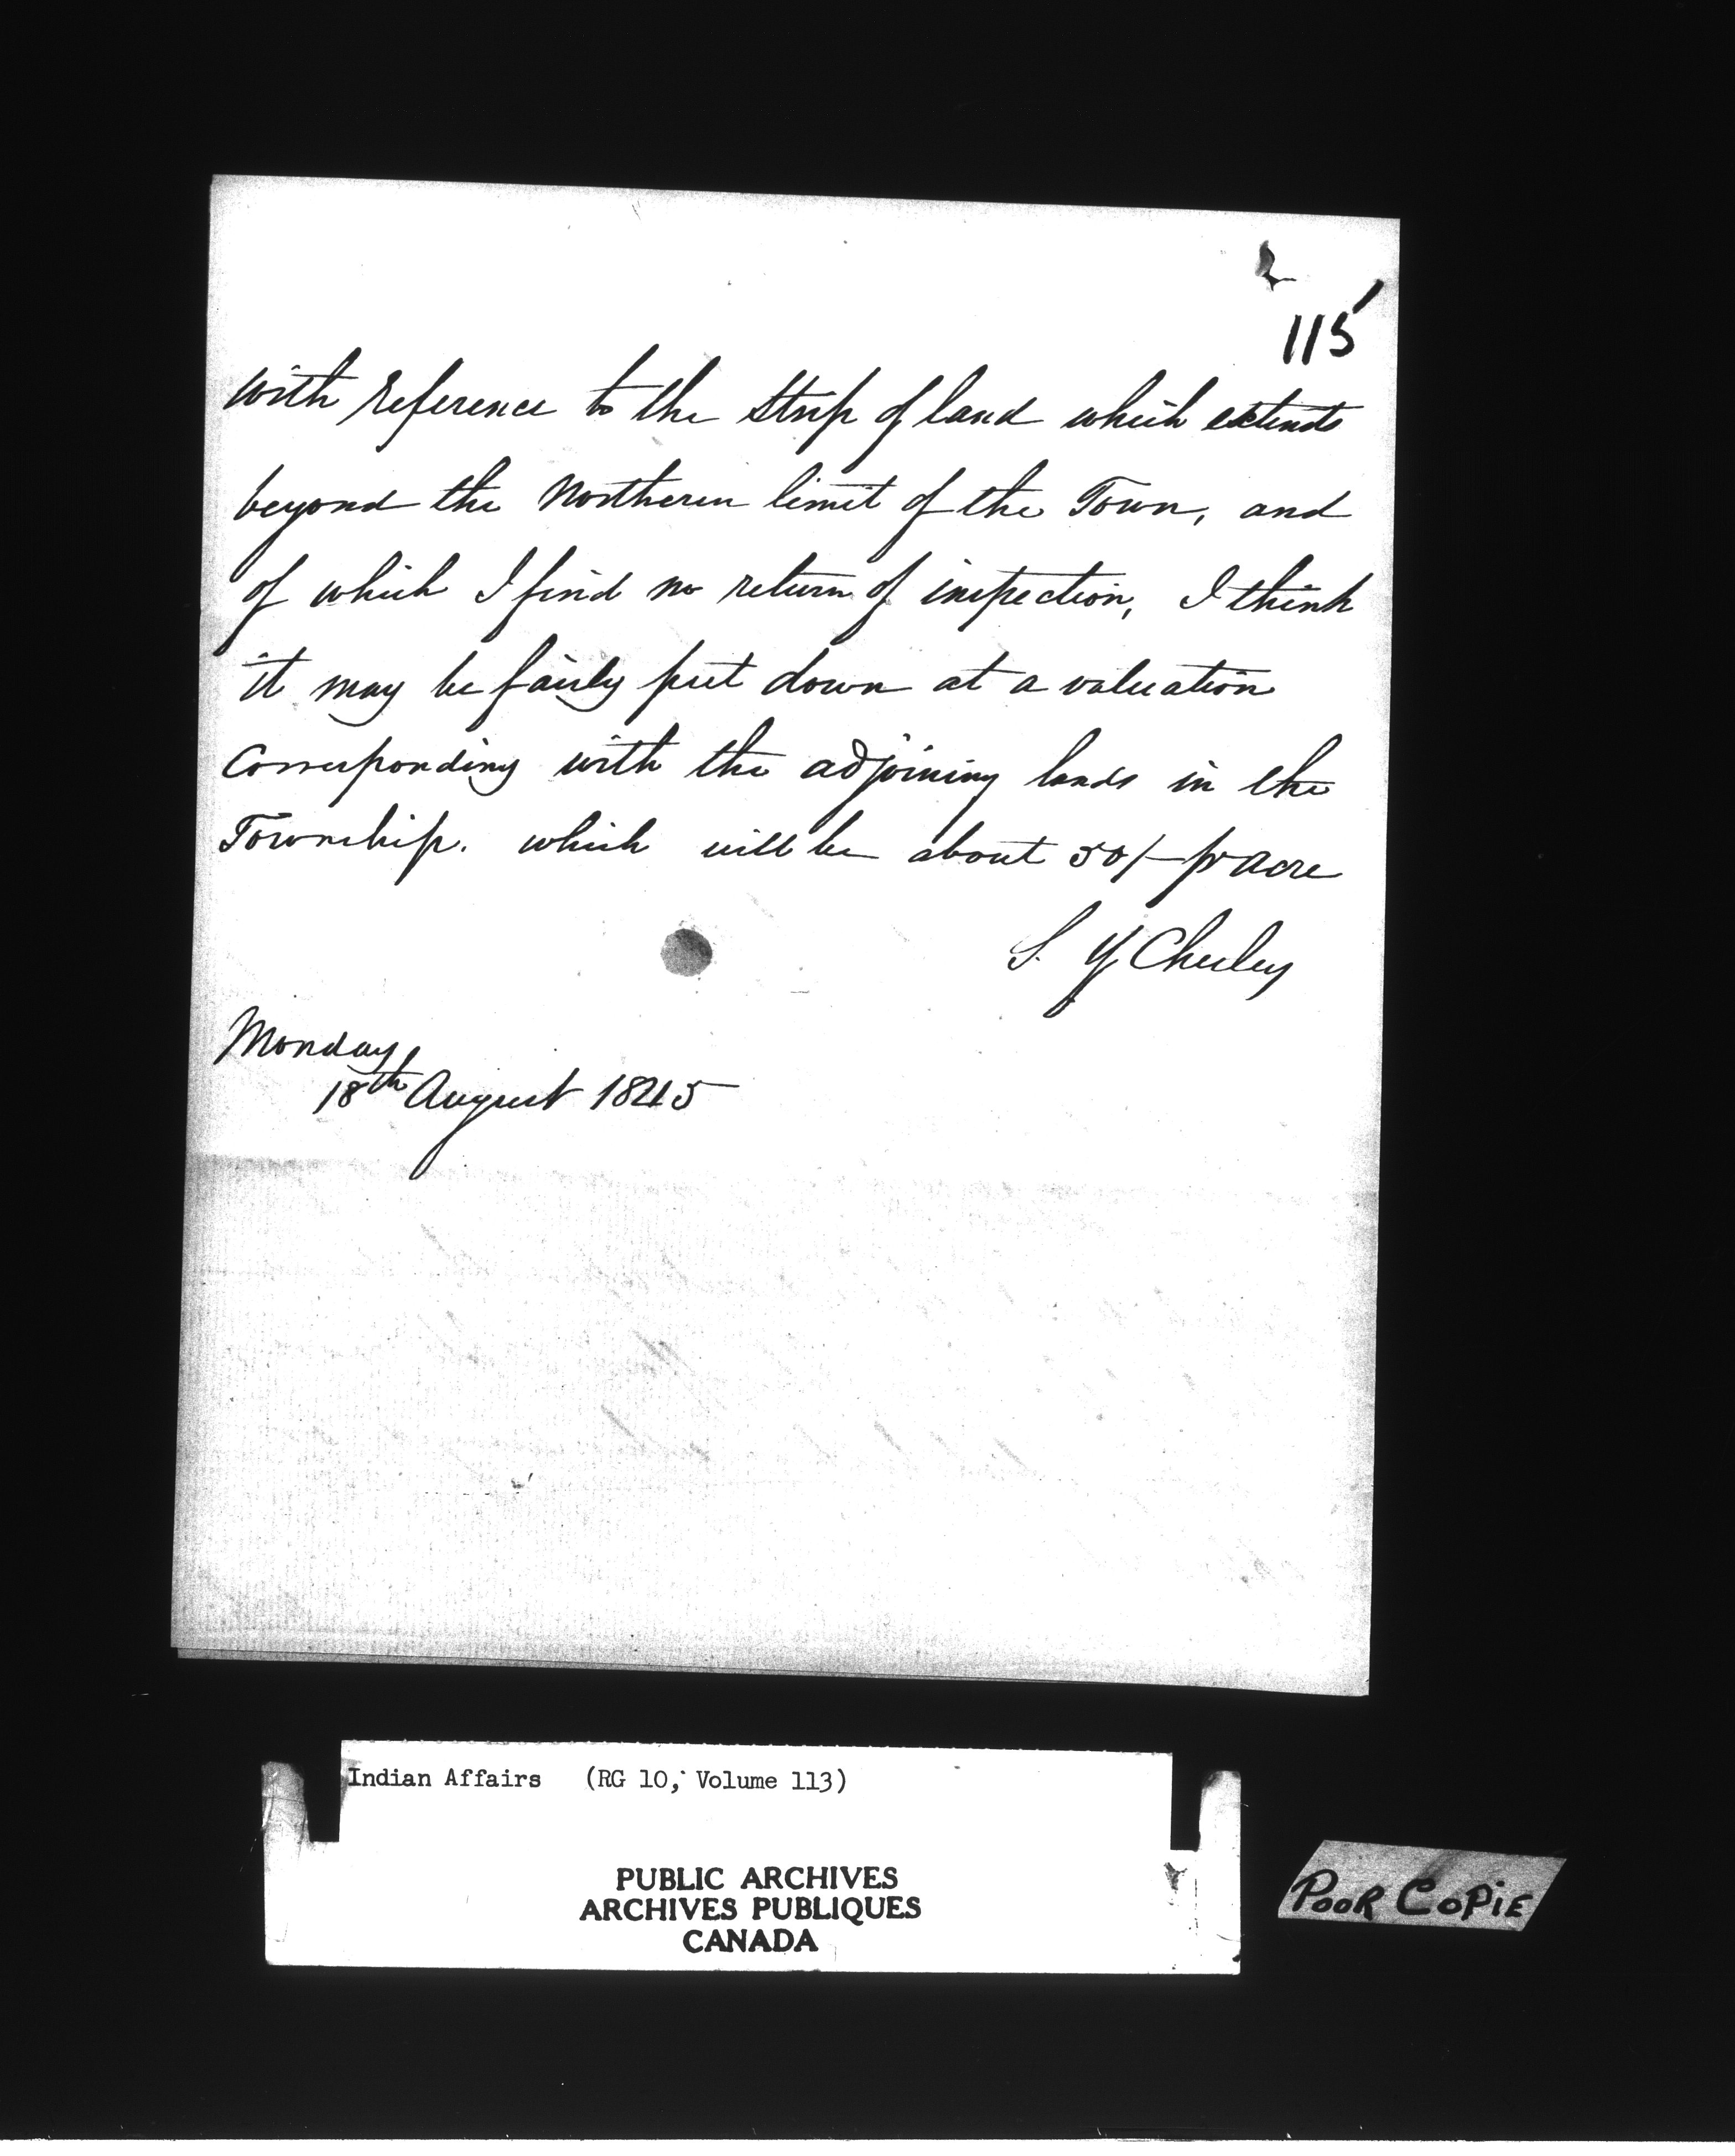 115
with reference to the Strip of land which extends
beyond the Northern limit of the Town, and
of which I find no return of inspection, I think
it may be fairly put down at a valuation
Corresponding with the adjoining lands in the
Township. which will be about 50/- pr Acre
S. Y Chesley
Monday
18th August 1845
Indian Affairs (RG 10, Volume 113)
PUBLIC ARCHIVES
ARCHIVES PUBLIQUES
CANADA
POOR COPIE